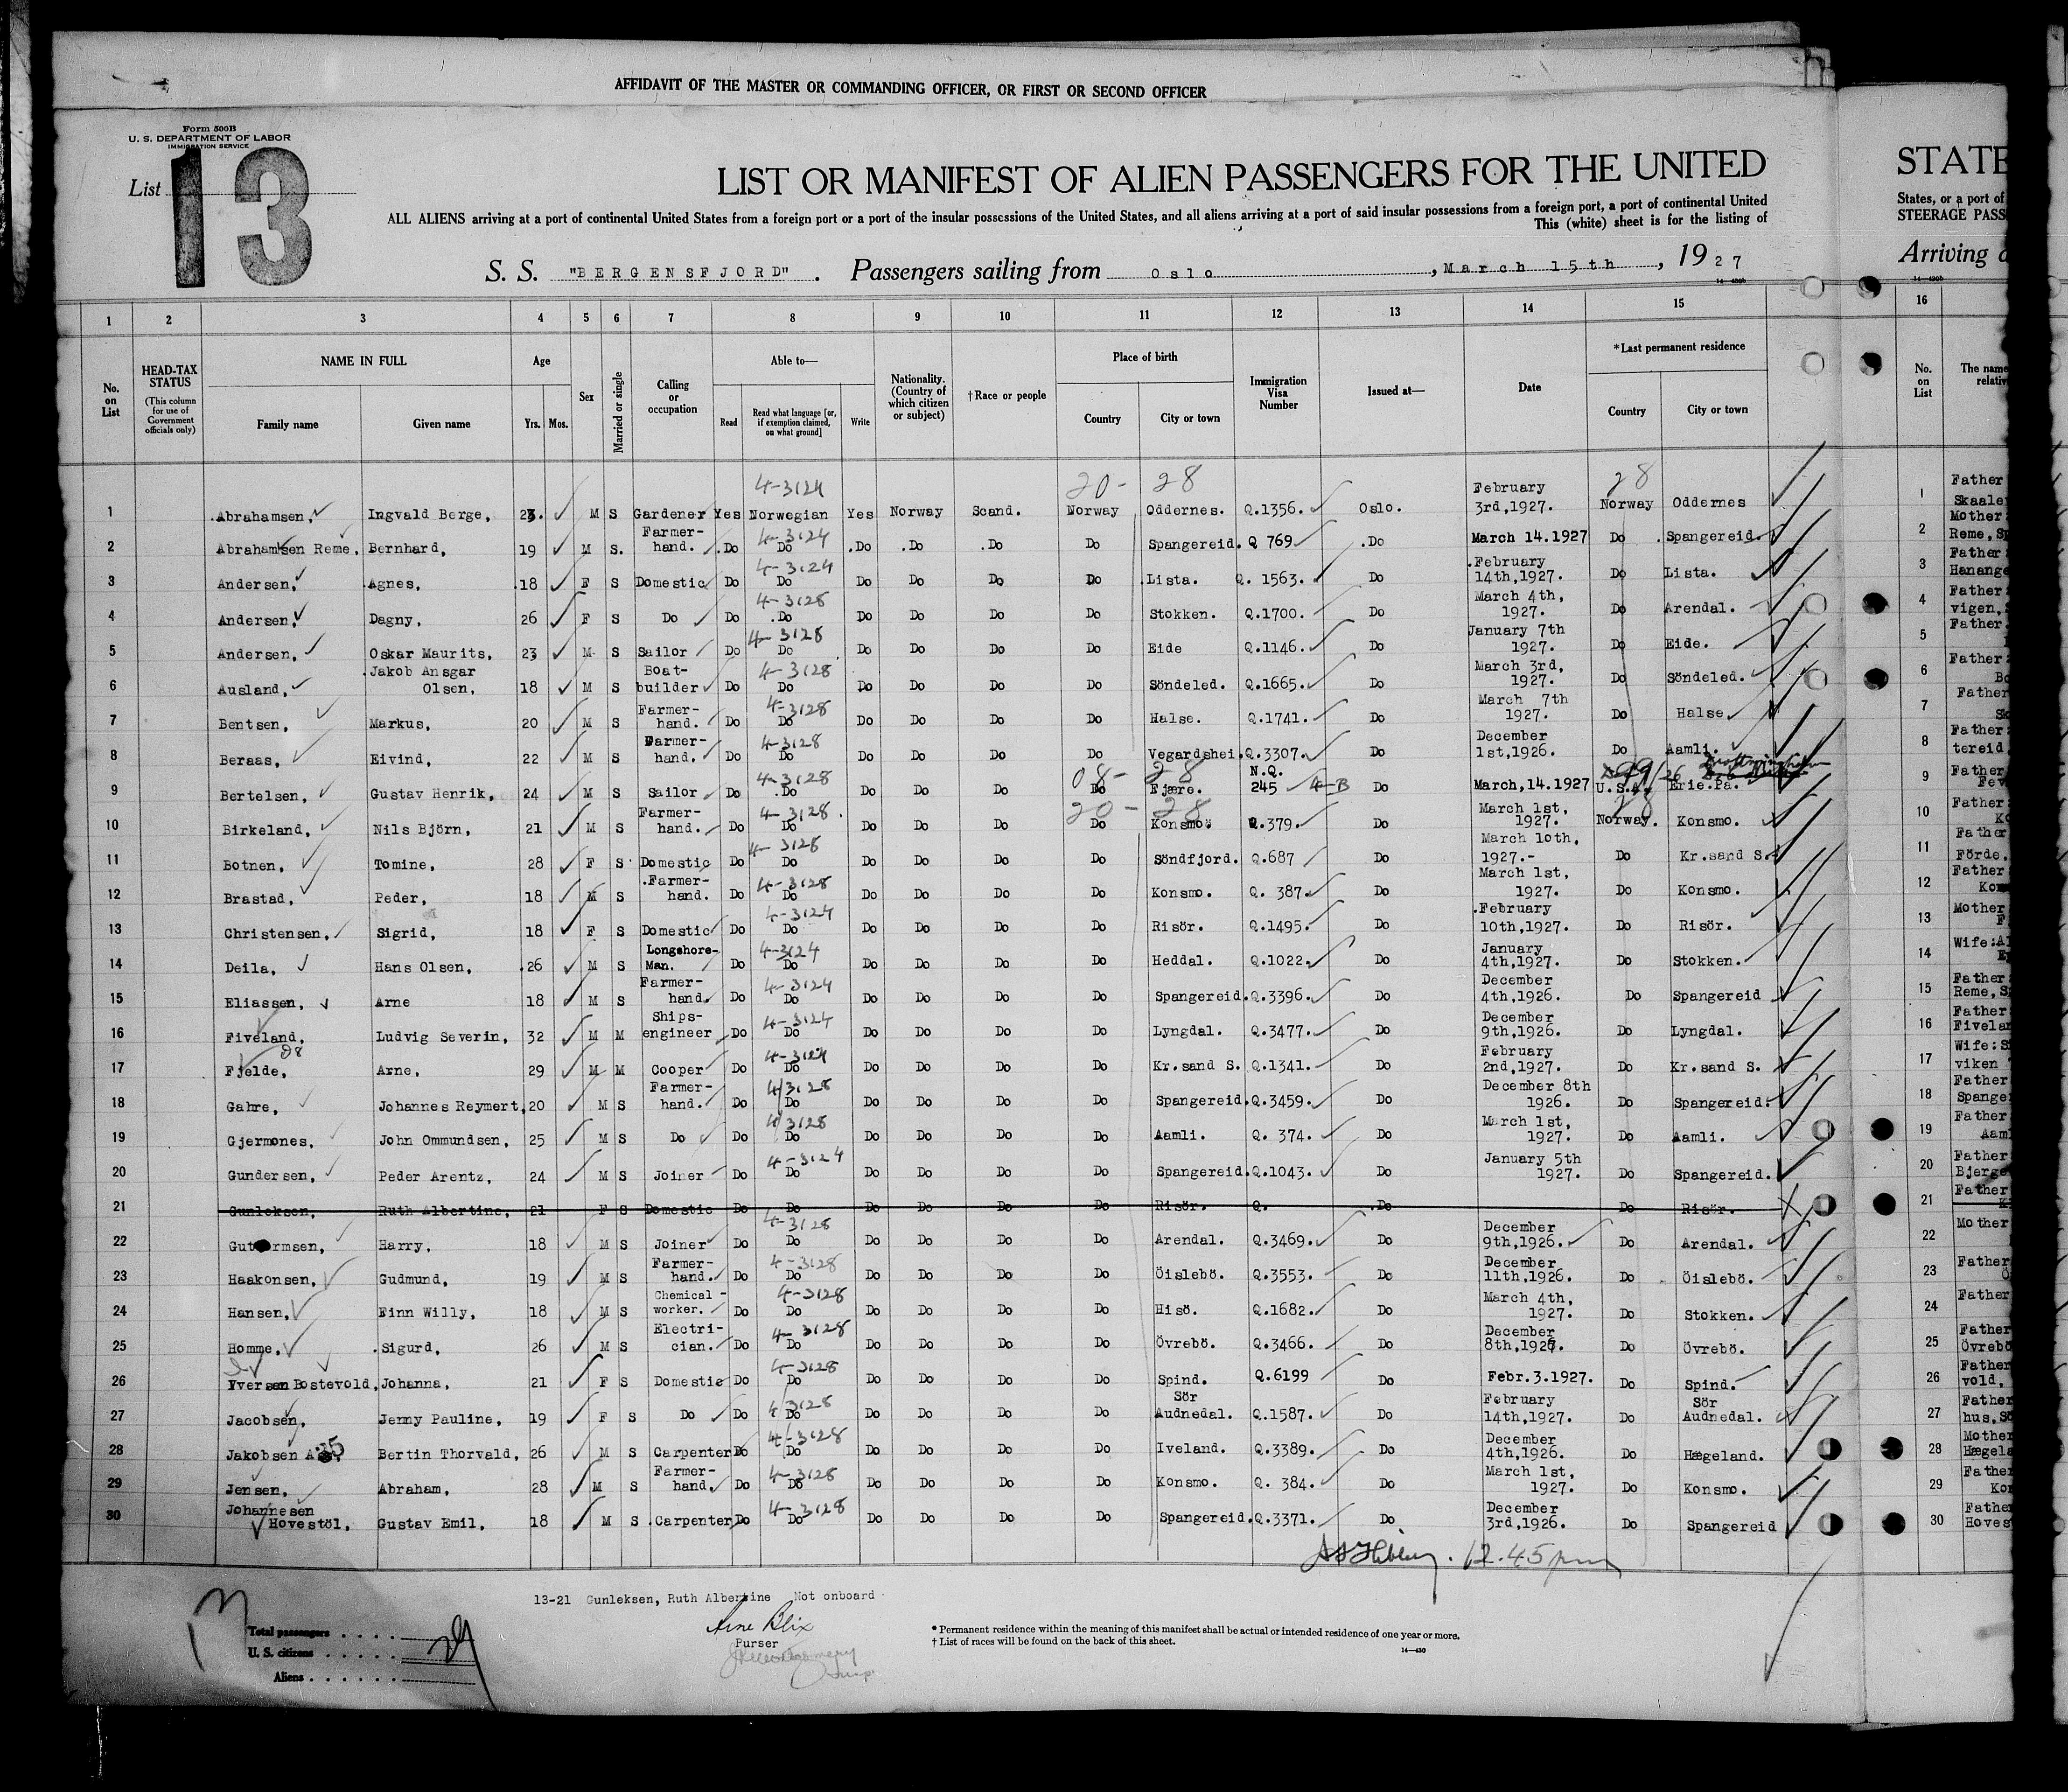 AFFIDAVIT OF THE MASTER OR COMMANDING OFFICER, OR FIRST OR SECOND OFFICER
Form 500B
U. S. DEPARTMENT OF LABOR
IMMIGRATION SERVICE
List 13
LIST OR MANIFEST OF ALIEN PASSENGERS FOR THE UNITED
STATE
ALL ALIENS arriving at a port of continental United States from a foreign port or a port of the insular possessions of the United States, and all aliens arriving at a port of said insular possessions from a foreign port, a port of continental United
States, or a port of
This (white) sheet is for the listing of
STEERAGE PASS
S. S. "BERGENSFJORD". Passengers sailing from Oslo, March 15th, 1927
Arriving
1 2 3 4 5 6 7 8 9 10 11 12 13 14 15 16
No. on List
HEAD-TAX STATUS
(This column for use of Government officials only)
NAME IN FULL
Family name
Given name
Age
Yrs. Mos.
Sex
Married or single
Calling or occupation
Able to—
Read
Read what language [or, if exemption claimed, on what ground]
Write
Nationality. (Country of which citizen or subject)
†Race or people
Place of birth
Country
City or town
Immigration Visa Number
Issued at—
Date
*Last permanent residence
Country
City or town
No. on List
The name
relativ
4-3124 20- 28 28
1 Abrahamsen, Ingvald Berge, 23. M S Gardener Yes Norwegian Yes Norway Scand. Norway Oddernes. Q.1356. Oslo. February 3rd,1927. Norway Oddernes 1 Father Skaale
2 Abrahamsen Reme, Bernhard, 19 M S. Farmer-hand. Do 4-3124 Do Do Do Do Do Spangereid. Q 769 Do March 14.1927 Do Spangereid. 2 Mother Reme, S
3 Andersen, Agnes, 18 F S Domestic Do 4-3124 Do Do Do Do Do Lista. Q. 1563. Do February 14th,1927. Do Lista. 3 Father Hanange
4 Andersen, Dagny, 26 F S Do Do 4-3128 Do Do Do Do Do Stokken. Q.1700. Do March 4th, 1927. Do Arendal. 4 Father vigen,
5 Andersen, Oskar Maurits, 23 M S Sailor Do 4-3128 Do Do Do Do Do Eide Q.1146. Do January 7th 1927. Do Eide. 5 Father
6 Ausland, Jakob Ansgar Olsen, 18 M S Boat-builder Do 4-3128 Do Do Do Do Do Söndeled. Q.1665. Do March 3rd, 1927. Do Söndeled. 6 Father
7 Bentsen, Markus, 20 M S Farmer-hand. Do 4-3128 Do Do Do Do Do Halse. Q.1741. Do March 7th 1927. Do Halse. 7 Father
8 Beraas, Eivind, 22 M S Farmer-hand. Do 4-3128 Do Do Do Do Do Vegardshei. Q.3307. Do December 1st,1926. Do Aamli. 8 Father tereid
9 Bertelsen, Gustav Henrik, 24 M S Sailor Do 4-3128 Do Do Do Do 08- Do 28 Fjære. N.Q. 245 4-B Do March,14.1927 U.S.A. Erie.Pa. 9 Father Fev
10 Birkeland, Nils Björn, 21 M S Farmer-hand. Do 4-3128 Do Do Do Do 20- Do 28 Konsmo. Q.379. Do March 1st, 1927. 28 Norway. Konsmo. 10 Father
11 Botnen, Tomine, 28 F S Domestic Do 4-3128 Do Do Do Do Do Söndfjord. Q.687 Do March 10th, 1927.- Do Kr.sand S. 11 Father Förde.
12 Brastad, Peder, 18 M S Farmer-hand. Do 4-3128 Do Do Do Do Do Konsmo. Q. 387. Do March 1st, 1927. Do Konsmo. 12 Father
13 Christensen, Sigrid, 18 F S Domestic Do 4-3124 Do Do Do Do Do Risör. Q.1495. Do February 10th,1927. Do Risör. 13 Mother
14 Deila, Hans Olsen, 26 M S Longshore-Man. Do 4-3124 Do Do Do Do Do Heddal. Q.1022. Do January 4th,1927. Do Stokken. 14 Wife:
15 Eliassen, Arne 18 M S Farmer-hand. Do 4-3124 Do Do Do Do Do Spangereid. Q.3396. Do December 4th,1926. Do Spangereid 15 Father Reme, S
16 Fiveland, Ludvig Severin, 32 M M Ships-engineer Do 4-3124 Do Do Do Do Do Lyngdal. Q.3477. Do December 9th,1926. Do Lyngdal. 16 Father Fivela
17 Fjelde, Arne, 29 M M Cooper Do 4-3124 Do Do Do Do Do Kr.sand S. Q.1341. Do February 2nd,1927. Do Kr.sand S. 17 Wife: viken
18 Gahre, Johannes Reymert, 20 M S Farmer-hand. Do 4/3128 Do Do Do Do Do Spangereid. Q.3459. Do December 8th 1926. Do Spangereid. 18 Father Spange
19 Gjermones, John Ommundsen, 25 M S Do Do 4/3128 Do Do Do Do Do Aamli. Q. 374. Do March 1st, 1927. Do Aamli. 19 Father Aaml
20 Gundersen, Peder Arentz, 24 M S Joiner Do 4-3124 Do Do Do Do Do Spangereid. Q.1043. Do January 5th 1927. Do Spangereid. 20 Father Bjerge
21 Gunleksen, Ruth Albertine, 21 F S Domestic Do Do Do Do Do Do Risör. Q. Do Do Risör. 21 Father
22 Guttormsen, Harry, 18 M S Joiner Do 4-3128 Do Do Do Do Do Arendal. Q.3469. Do December 9th,1926. Do Arendal. 22 Mother
23 Haakonsen, Gudmund, 19 M S Farmer-hand. Do 4-3128 Do Do Do Do Do Öislebö. Q.3553. Do December 11th,1926. Do Öislebö. 23 Father
24 Hansen, Finn Willy, 18 M S Chemical-worker. Do 4-3128 Do Do Do Do Do Hisö. Q.1682. Do March 4th, 1927. Do Stokken. 24 Father
25 Homme, Sigurd, 26 M S Electri-cian. Do 4-3128 Do Do Do Do Do Övrebö. Q.3466. Do December 8th,1926. Do Övrebö. 25 Father Övrebö
26 Iversen Bostevold, Johanna, 21 F S Domestic Do 4-3128 Do Do Do Do Do Spind. Q.6199 Do Febr.3.1927. Do Spind. 26 Father vold,
27 Jacobsen, Jenny Pauline, 19 F S Do Do 4/3128 Do Do Do Do Do Sör Audnedal. Q.1587. Do February 14th,1927. Do Sör Audnedal. 27 Father hus,
28 Jakobsen Bertin Thorvald, 26 M S Carpenter Do 4/3128 Do Do Do Do Do Iveland. Q.3389. Do December 4th,1926. Do Hægeland. 28 Mother Hægela
29 Jensen, Abraham, 28 M S Farmer-hand. Do 4-3128 Do Do Do Do Do Konsmo. Q. 384. Do March 1st, 1927. Do Konsmo. 29 Father Kon
30 Johannesen Hovestöl, Gustav Emil, 18 M S Carpenter Do 4-3128 Do Do Do Do Do Spangereid. Q.3371. Do December 3rd,1926. Do Spangereid 30 Father Hoves
12.45 pm
13-21 Gunleksen, Ruth Albertine Not onboard
Arne Blix
Purser
Total passengers . . . .
U. S. citizens . . . . .
Aliens . . . . . .
29
* Permanent residence within the meaning of this manifest shall be actual or intended residence of one year or more.
† List of races will be found on the back of this sheet.
14—430